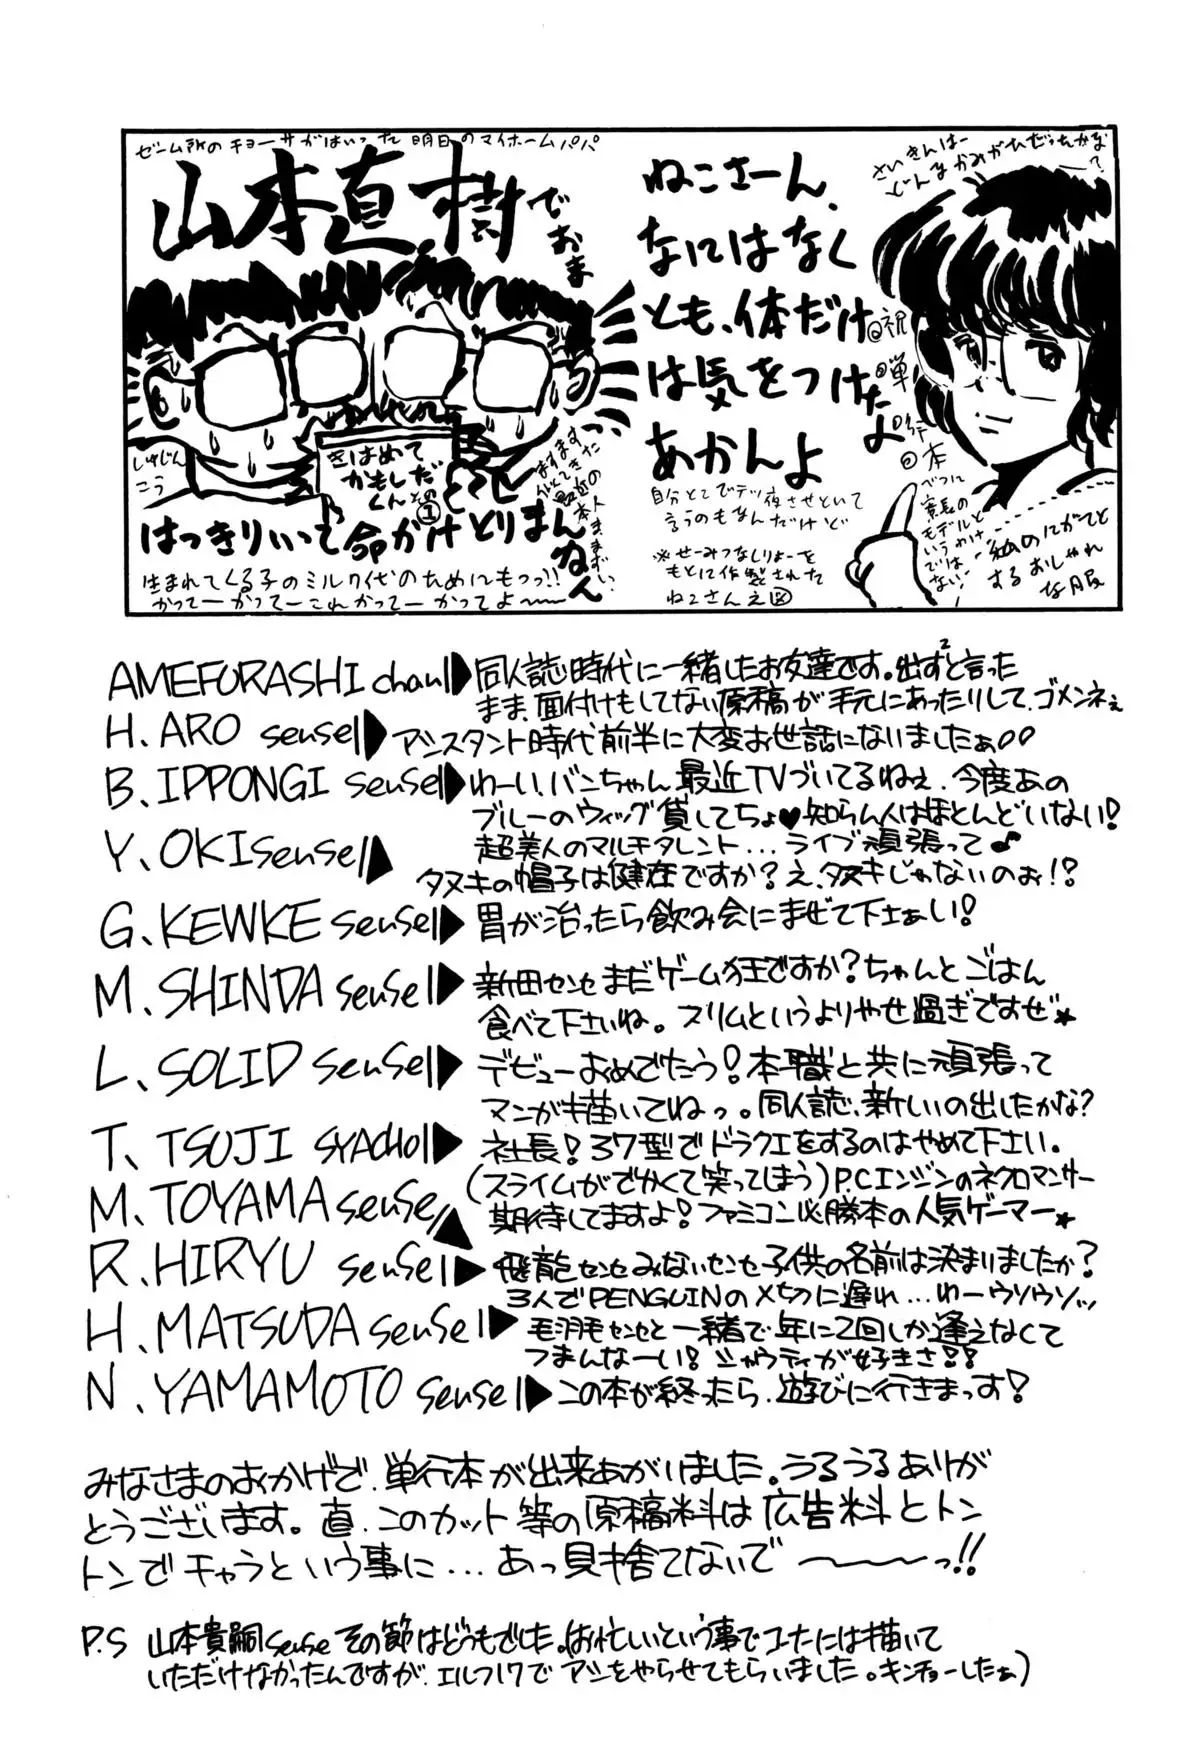 ゼーム所のチョーサがはいった明日のマイホームパパ
山本直樹でおま
きはめて
かもしだ
くんその
①
しゅじんこう
はっきりいって命がけとりまんねん
生まれてくる子のミルク代のためにもっっ!!
かってーかってーこれかってーかってよ〜〜
ねこさーん、
なにはなく
とも、体だけ
は気をつけた
あかんよ
自分とこでテツ夜させといて
言うのもなんだけど
※せーみつなしりょーを
もとに作製された
ねこさん之図
さいきんはー
どんなかみがたひだったかな?
祝単行本
べつに
家長の
モデルと
いうわけ
ではない!
私のにがてと
するおしゃれ
な服
AMEFURASHI chan▶同人誌時代に一緒したお友達です。出ず²と言った
まま、面付けもしてない原稿が手元にあったりして、ゴメンネぇ
H. ARO sensei▶アシスタント時代前半に大変お世話にないましたぁ
B. IPPONGI sensei▶わーい、バンちゃん最近TVづいてるねぇ、今度あの
ブルーのウィッグ貸してちょ♥知らん人はほとんどいない!
超美人のマルチタレント...ライブ頑張って♪
Y. OKI sensei▲タヌキの帽子は健在ですか?え、タヌキじゃないのぉ!?
G. KEWKE sensei▶胃が治ったら飲み会にまぜて下さぁい!
M. SHINDA sensei▶新田センセまだゲーム狂ですか?ちゃんとごはん
食べて下さいね。スリムというよりやせ過ぎですぜ★
L. SOLID sensei▶デビューおめでたう!本職と共に頑張って
マンガも描いてねっ。同人誌、新しいの出したかな?
T. TSUJI SYACHO▶社長!37型でドラクエをするのはやめて下さい。
(スライムがでかくて笑ってしまう)P.Cエンジンのネクロマンサー
M. TOYAMA sensei▲期待してますよ!ファミコン必勝本の人気ゲーマー★
R. HIRYU sensei▶飛龍センセみないセンセ子供の名前は決まりましたか?
3人でPENGUINの〆切に遅れ...わーウソウソッ
H. MATSUDA sensei▶毛羽毛センセと一緒で年に2回しか逢えなくて
つまんなーい!シャウティが好きさ!!
N. YAMAMOTO sensei▶この本が終ったら、遊びに行きまっす!
みなさまのおかげで、単行本が出来あがいました。うるうるありが
とうございます。直、このカット等の原稿料は広告料とトン
トンでチャラという事に...あっ見捨てないで〜〜〜っ!!
P.S 山本貴嗣senseその節はどうもでした。(お忙しいという事でコーナには描いて
いただけなかったんですが、エルフ17でアシをやらせてもらいました。キンチョーしたぁ)